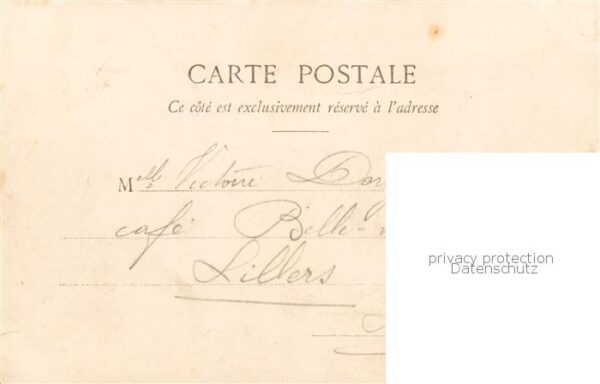 CARTE POSTALE
Ce côté est exclusivement réservé à l'adresse
Melle Victoire
café Belle-
Lillers
privacy protection
Datenschutz